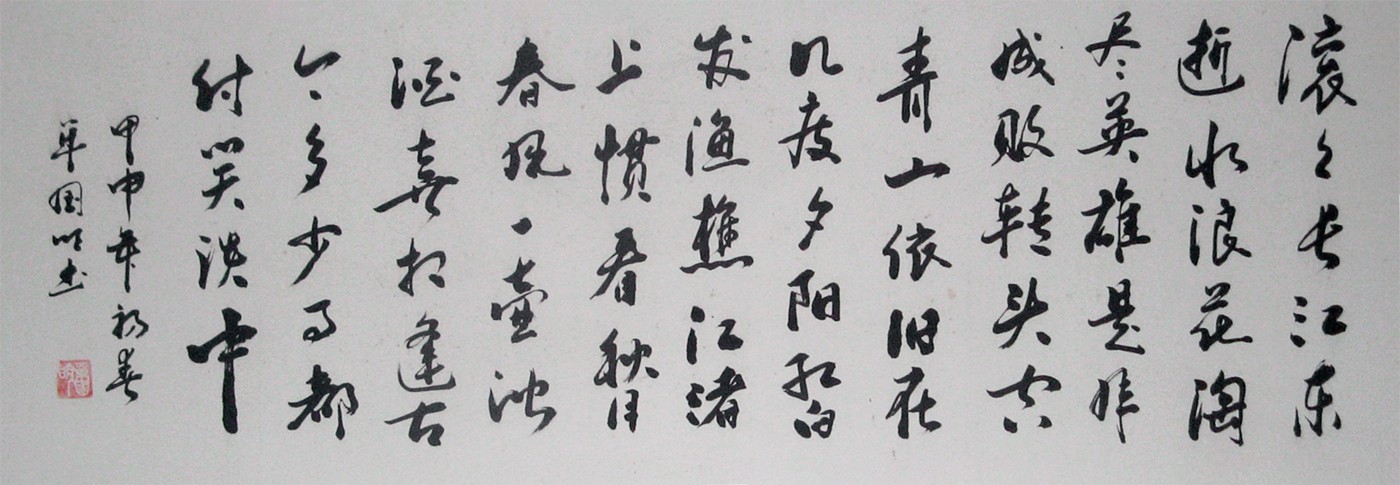 滚々长江东
逝水浪花淘
尽英雄是非
成败转头空
青山依旧在
几度夕阳红白
发渔樵江渚
上惯看秋月
春风一壶浊
酒喜相逢古
今多少事都
付笑谈中
甲申年初春
单国明书